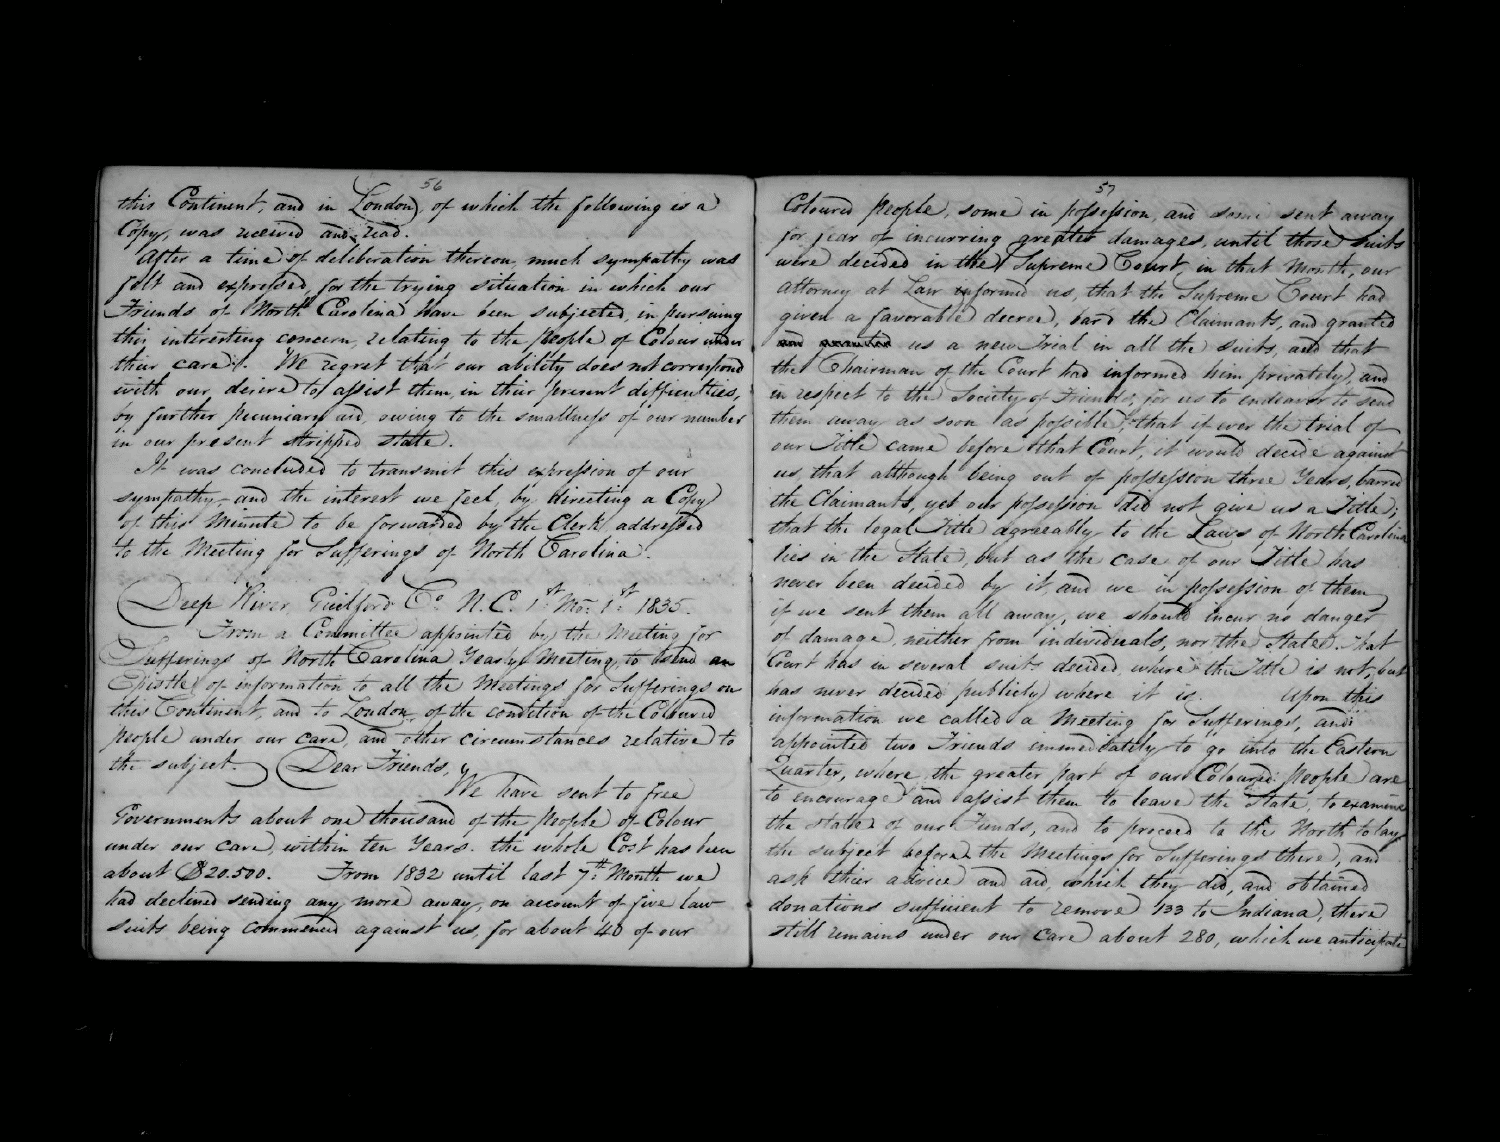 56
this Continent, and in London, of which the following is a
Copy, was received and read.
After a time of deliberation thereon, much sympathy was
felt and expressed, for the trying situation in which our
Friends of North Carolina have been subjected, in pursuing
this interesting concern, relating to the People of Colour under
their care. We regret that our ability does not correspond
with our desire to assist them, in their present difficulties,
by further pecuniary aid, owing to the smallness of our number
in our present stripped state.
It was concluded to transmit this expression of our
sympathy and the interest we feel, by directing a Copy
of this Minute to be forwarded by the Clerk, addressed
to the Meeting for Sufferings of North Carolina.
Deep River, Guilford Co. N.C. 1st Mo. 1st 1835.
From a Committee appointed by the Meeting for
Sufferings of North Carolina Yearly Meeting, to send an
Epistle of information to all the Meetings for Sufferings on
this Continent, and to London, of the condition of the Coloured
people under our care, and other circumstances relative to
the subject. Dear Friends,
We have sent to free
Governments about one thousand of the People of Colour
under our care, within ten Years. the whole Cost has been
about $20.500. From 1832 until last 7th Month we
had declined sending any more away, on account of five law
suits being commenced against us, for about 40 of our
57
Coloured People, some in possession, and some sent away
for fear of incurring greater damages, until those suits
were decided in the Supreme Court, in that Month, our
attorney at Law informed us, that the Supreme Court had
given a favorable decree, bar'd the Claimants, and granted
us a new Trial in all the suits, and that
the Chairman of the Court had informed him privately, and
in respect to the Society of Friends, for us to endeavor to send
them away as soon as possible, that if ever the trial of
our Title came before that Court, it would decide against
us, that although being out of possession three Years, barred
the Claimants, yet our possession did not give us a Title;
that the legal Title agreeably to the Laws of North Carolina
lies in the State, but as the case of our Title has
never been decided by it, and we in possession of them
if we sent them all away, we should incur no danger
of damage, neither from individuals, nor the State. That
Court has in several suits decided where the Title is not, but
has never decided publicly where it is. Upon this
information we called a Meeting for Sufferings, and
appointed two Friends immediately to go into the Eastern
Quarter, where the greater part of our Coloured People are
to encourage and assist them to leave the State, to examine
the state of our Funds, and to proceed to the North to lay
the subject before the Meetings for Sufferings there, and
ask their advice and aid, which they did, and obtained
donations sufficient to remove 133 to Indiana, there
still remains under our care about 280, which we anticipate